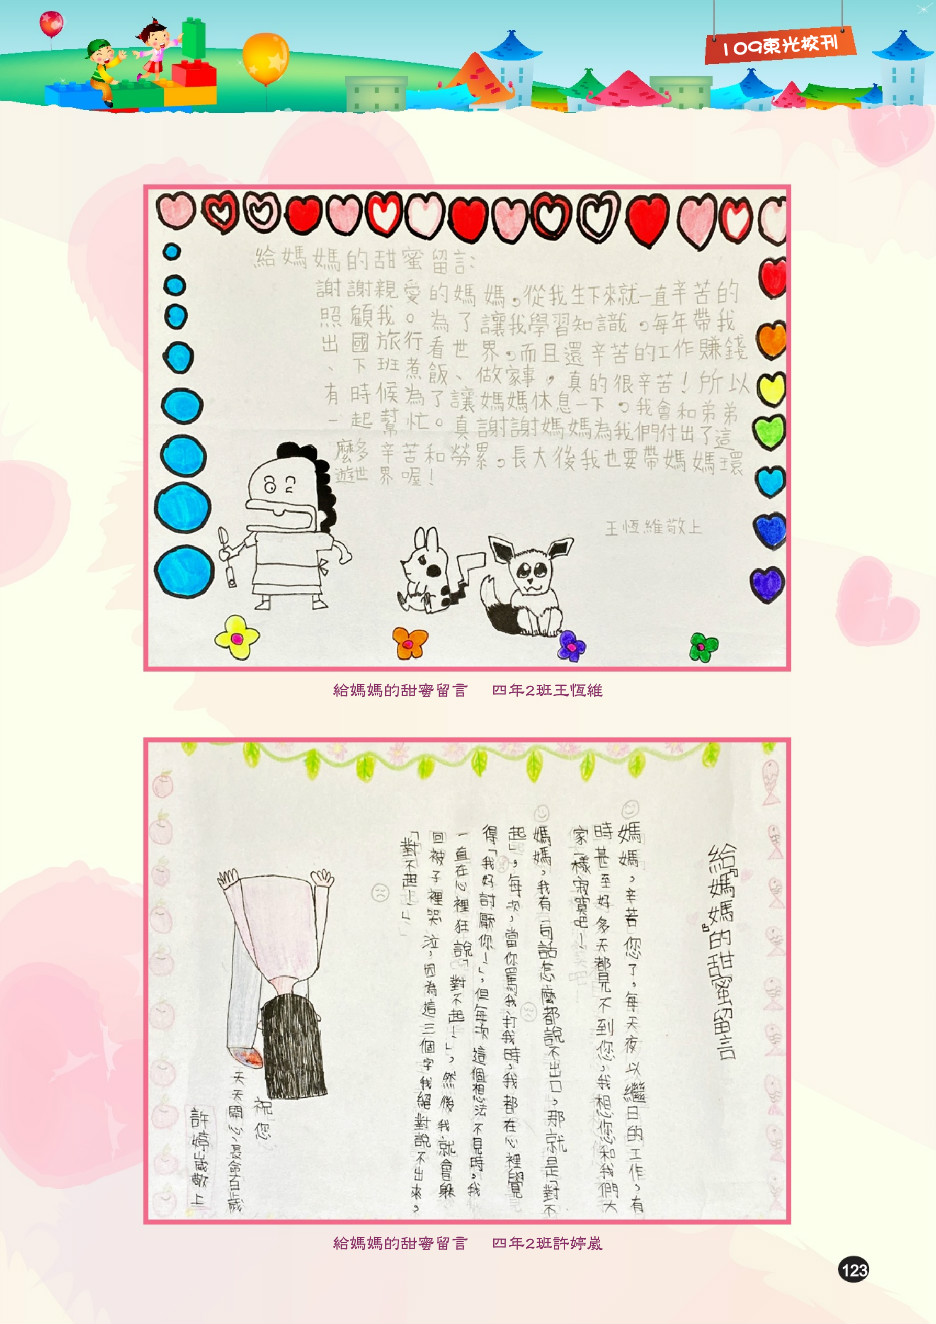 109東光校刊
給媽媽的甜蜜留言:
謝謝親愛的媽媽,從我生下來就一直辛苦的
照顧我。為了讓我學習知識,每年帶我
出國旅行看世界,而且還辛苦的工作賺錢
、下班煮飯、做家事,真的很辛苦!所以
有時候為了讓媽媽休息一下,我會和弟弟
一起幫忙。真謝謝媽媽為我們付出了這
麼多辛苦和勞累,長大後我也要帶媽媽環
遊世界喔!
王恆維敬上
給媽媽的甜蜜留言 四年2班王恆維
給「媽媽」的甜蜜留言
媽媽,辛苦您了,每天夜以繼日的工作,有
時甚至好多天都見不到您,我想您和我們大
家一樣寂寞吧!
媽媽,我有一句話怎麼都說不出口,那就是「對不
起」,每次,當你罵我、打我時,我都在心裡覺
得「我好討厭你!」,但每次這個想法不見時,我
一直在心裡狂說「對不起!」,然後我就會躲
回被子裡哭泣,因為這三個字我絕對說不出來,
「對不起!」
祝您
天天開心、長命百歲
許婷崴敬上
給媽媽的甜蜜留言 四年2班許婷崴
123